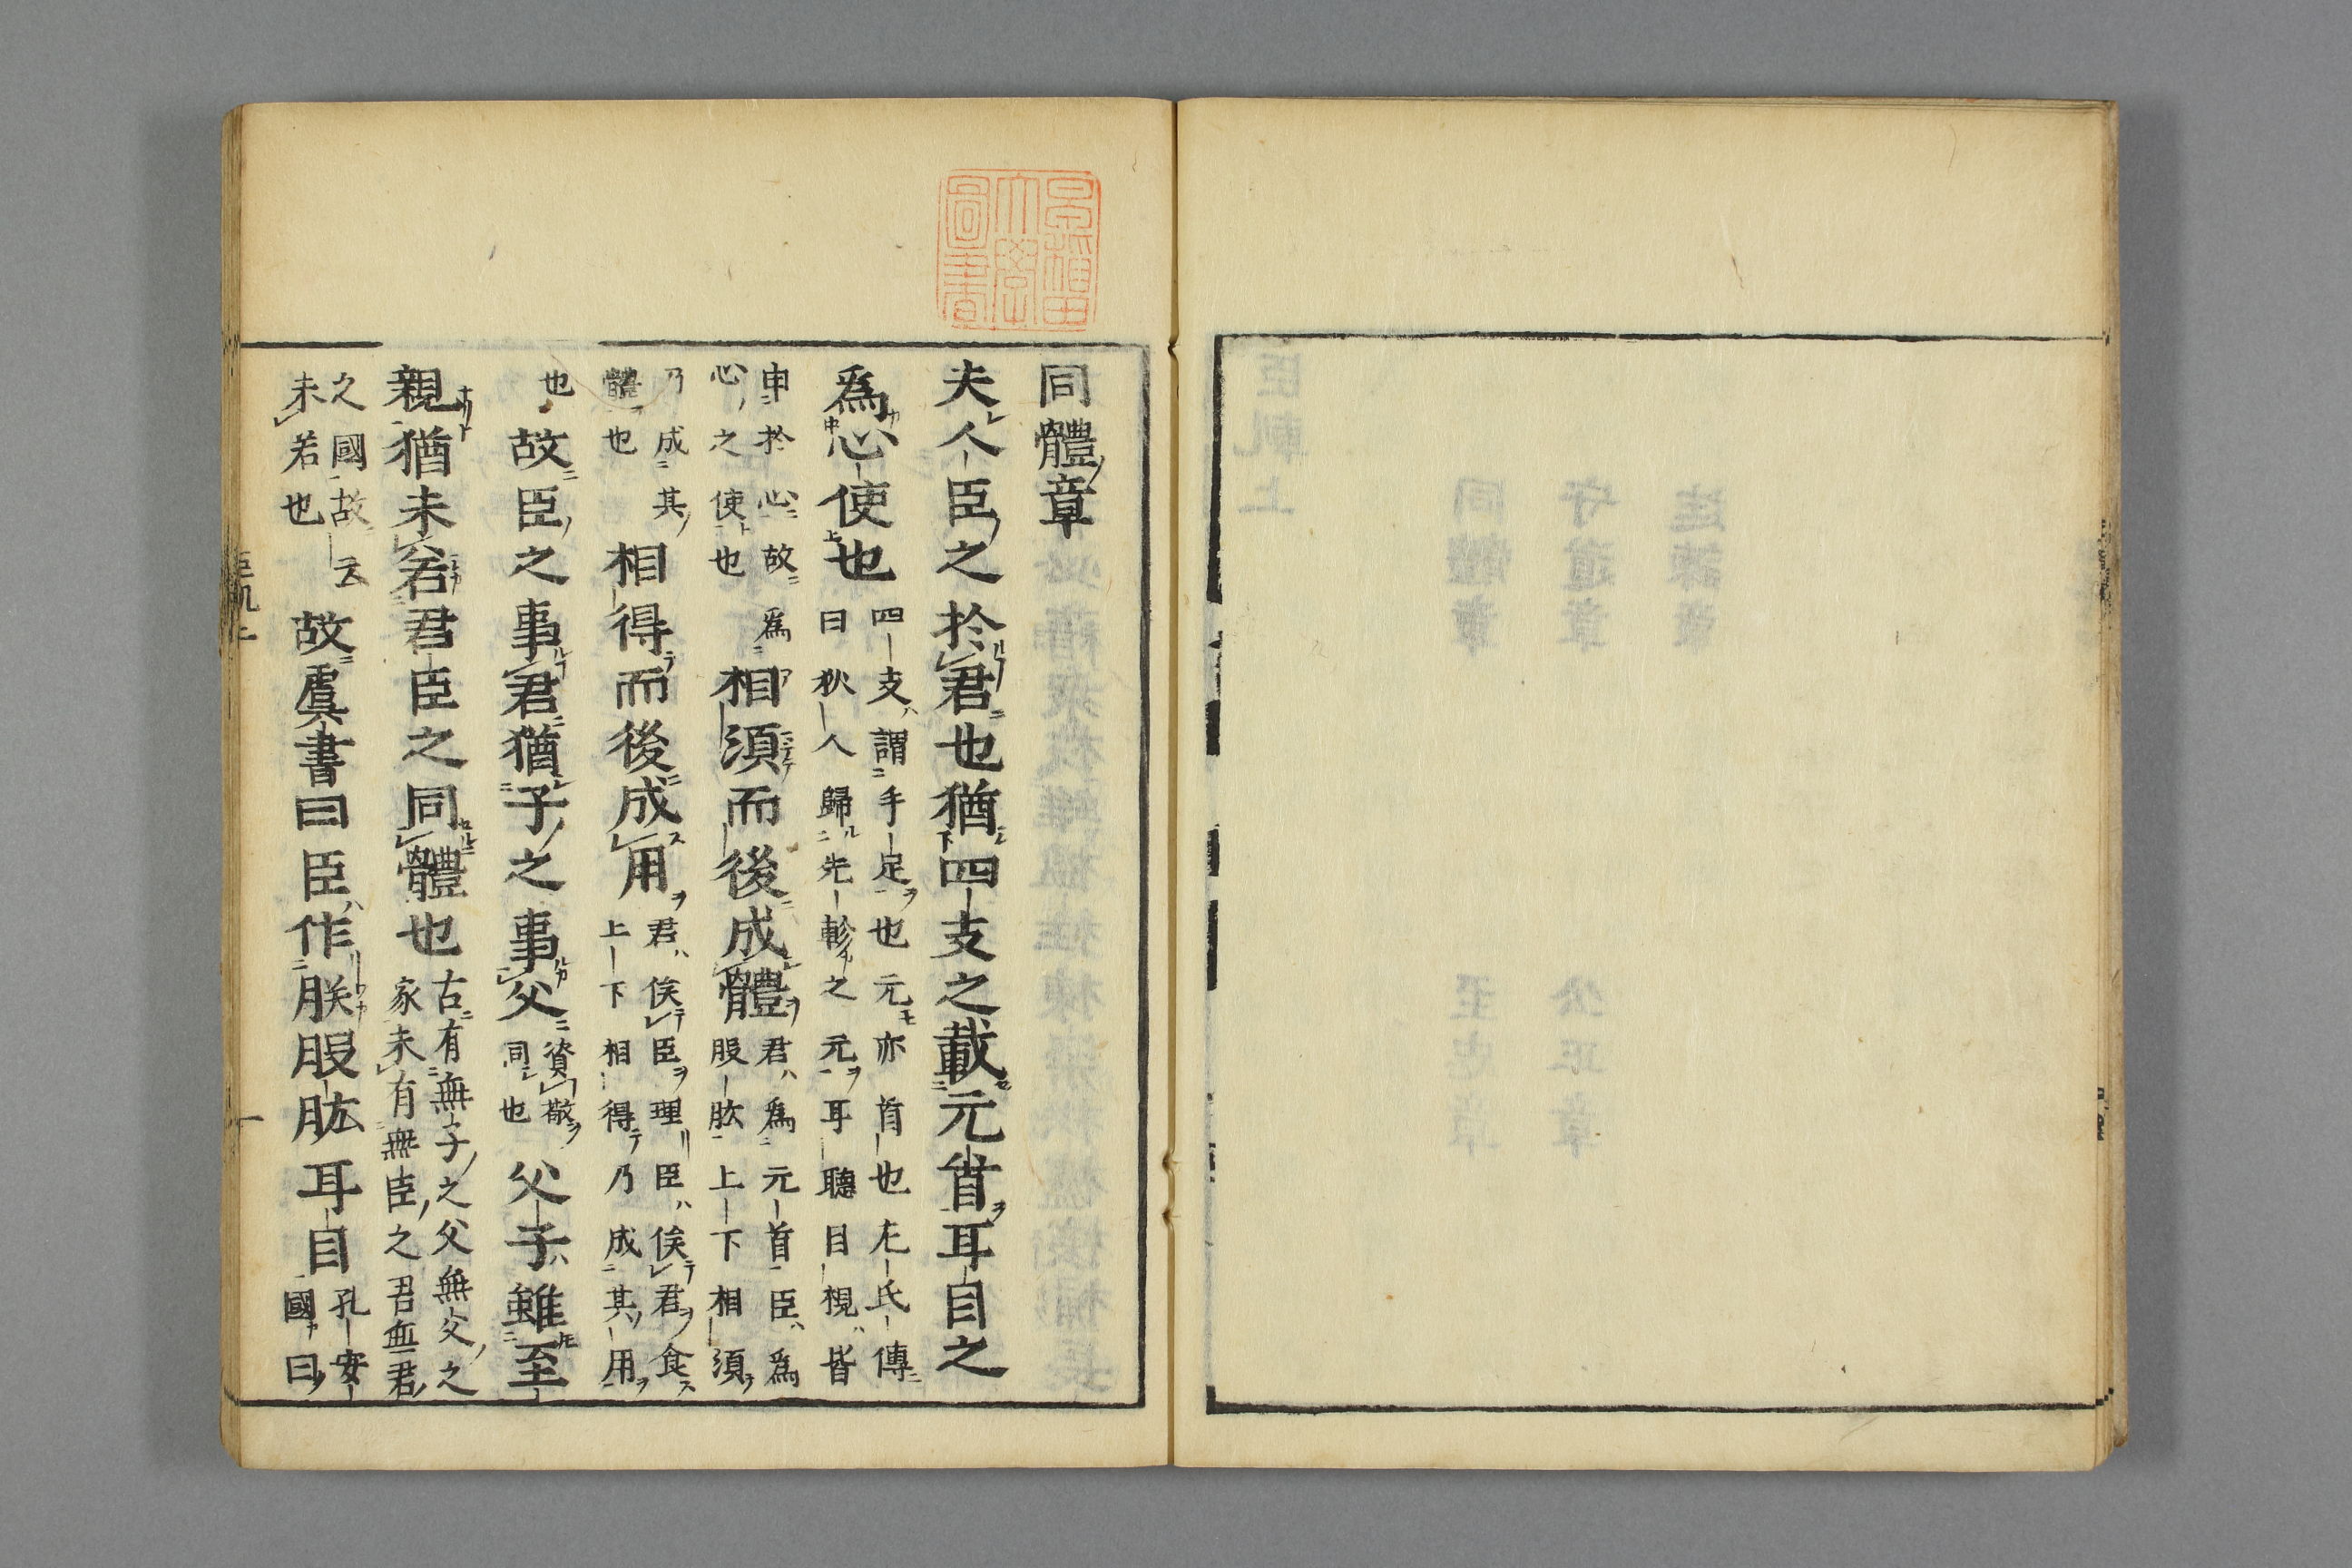 早稲田
大學
圖書
同體章
夫人臣之於君也猶四支之載元首耳目之
爲心使也
四支謂手足也元亦首也左氏傳
曰狄人歸先軫之元耳聽目視皆
申於心故爲
心之使也
相須而後成體
君爲元首臣爲
股肱上下相須
乃成其
體也
相得而後成用
君俟臣理臣俟君食
上下相得乃成其用
也
故臣之事君猶子之事父
資敬
同也
父子雖至
親猶未若君臣之同體也
古有無子之父無父之
家未有無臣之君無君
之國故云
未若也
故虞書曰臣作朕股肱耳目
孔安
國曰